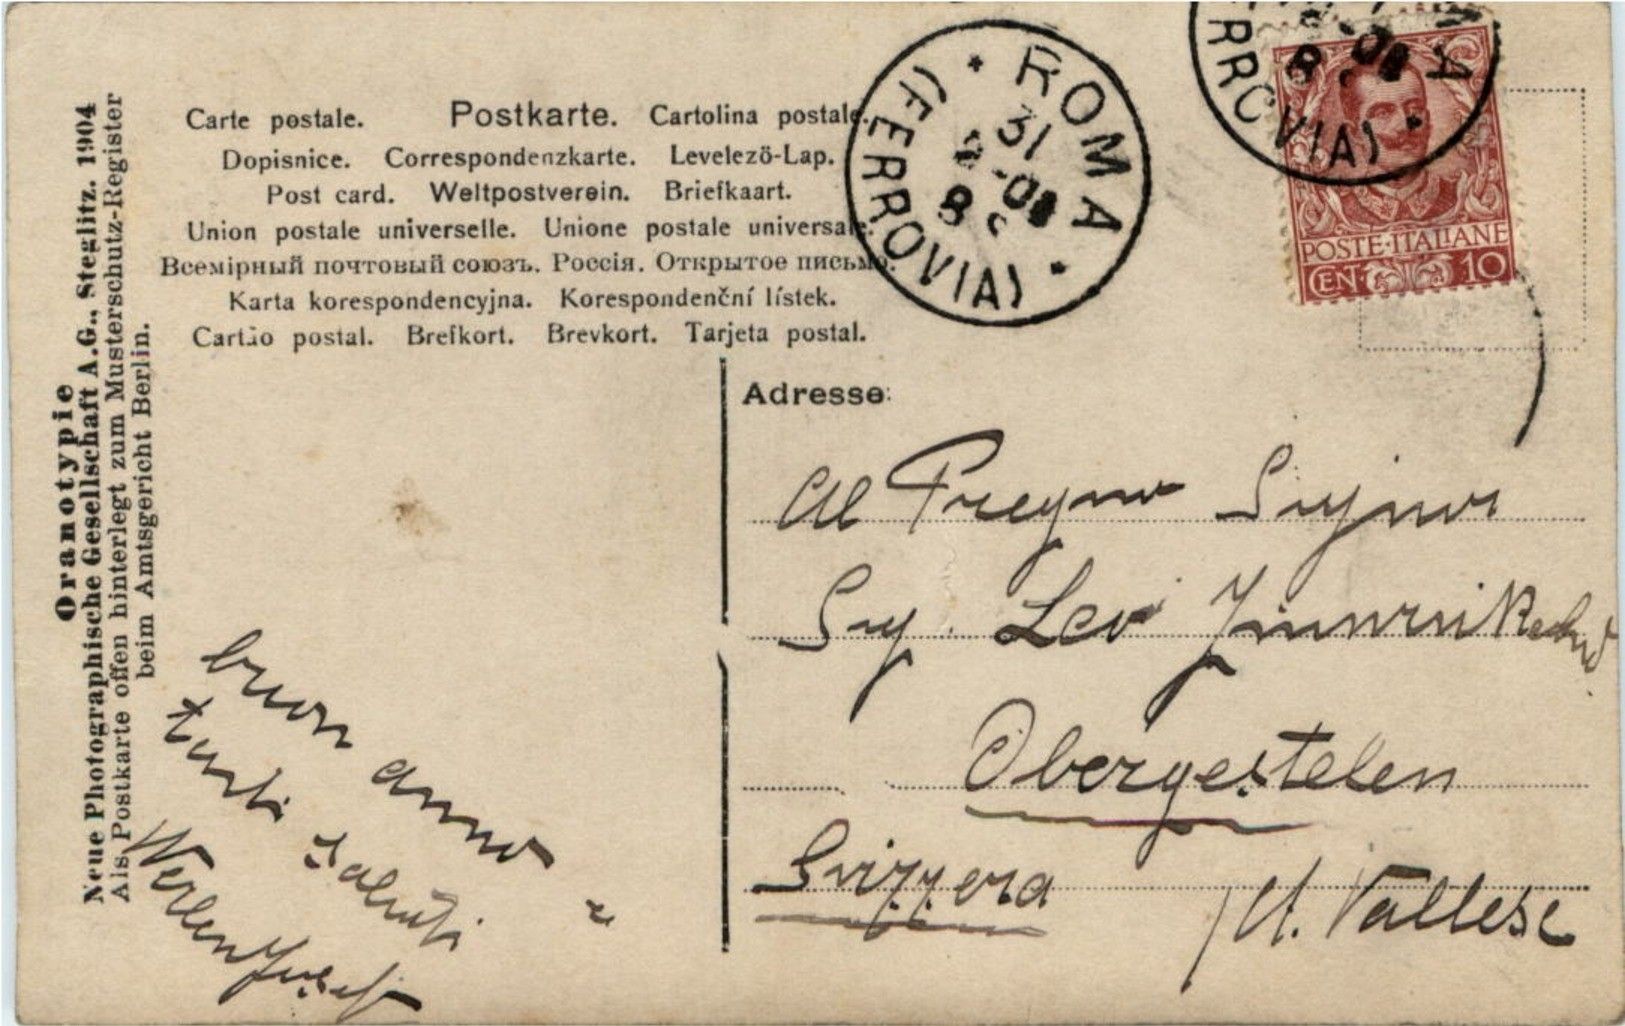 Carte postale. Postkarte. Cartolina postale.
Dopisnice. Correspondenzkarte. Levelezö-Lap.
Post card. Weltpostverein. Briefkaart.
Union postale universelle. Unione postale universale.
Всемірный почтовый союзъ. Россія. Открытое письмо.
Karta korespondencyjna. Korespondenční lístek.
Cartão postal. Brefkort. Brevkort. Tarjeta postal.
Oranotypie
Neue Photographische Gesellschaft A.G., Steglitz. 1904
Als Postkarte offen hinterlegt zum Musterschutz-Register
beim Amtsgericht Berlin.
ROMA
(FERROVIA)
31
8
POSTE·ITALIANE
CEN 10
Adresse:
Al Pregmo Signor
Sig. Leo
Obergestelen
Svizzera
Ct. Vallese
buon anno e
tanti saluti
Werlen Josef